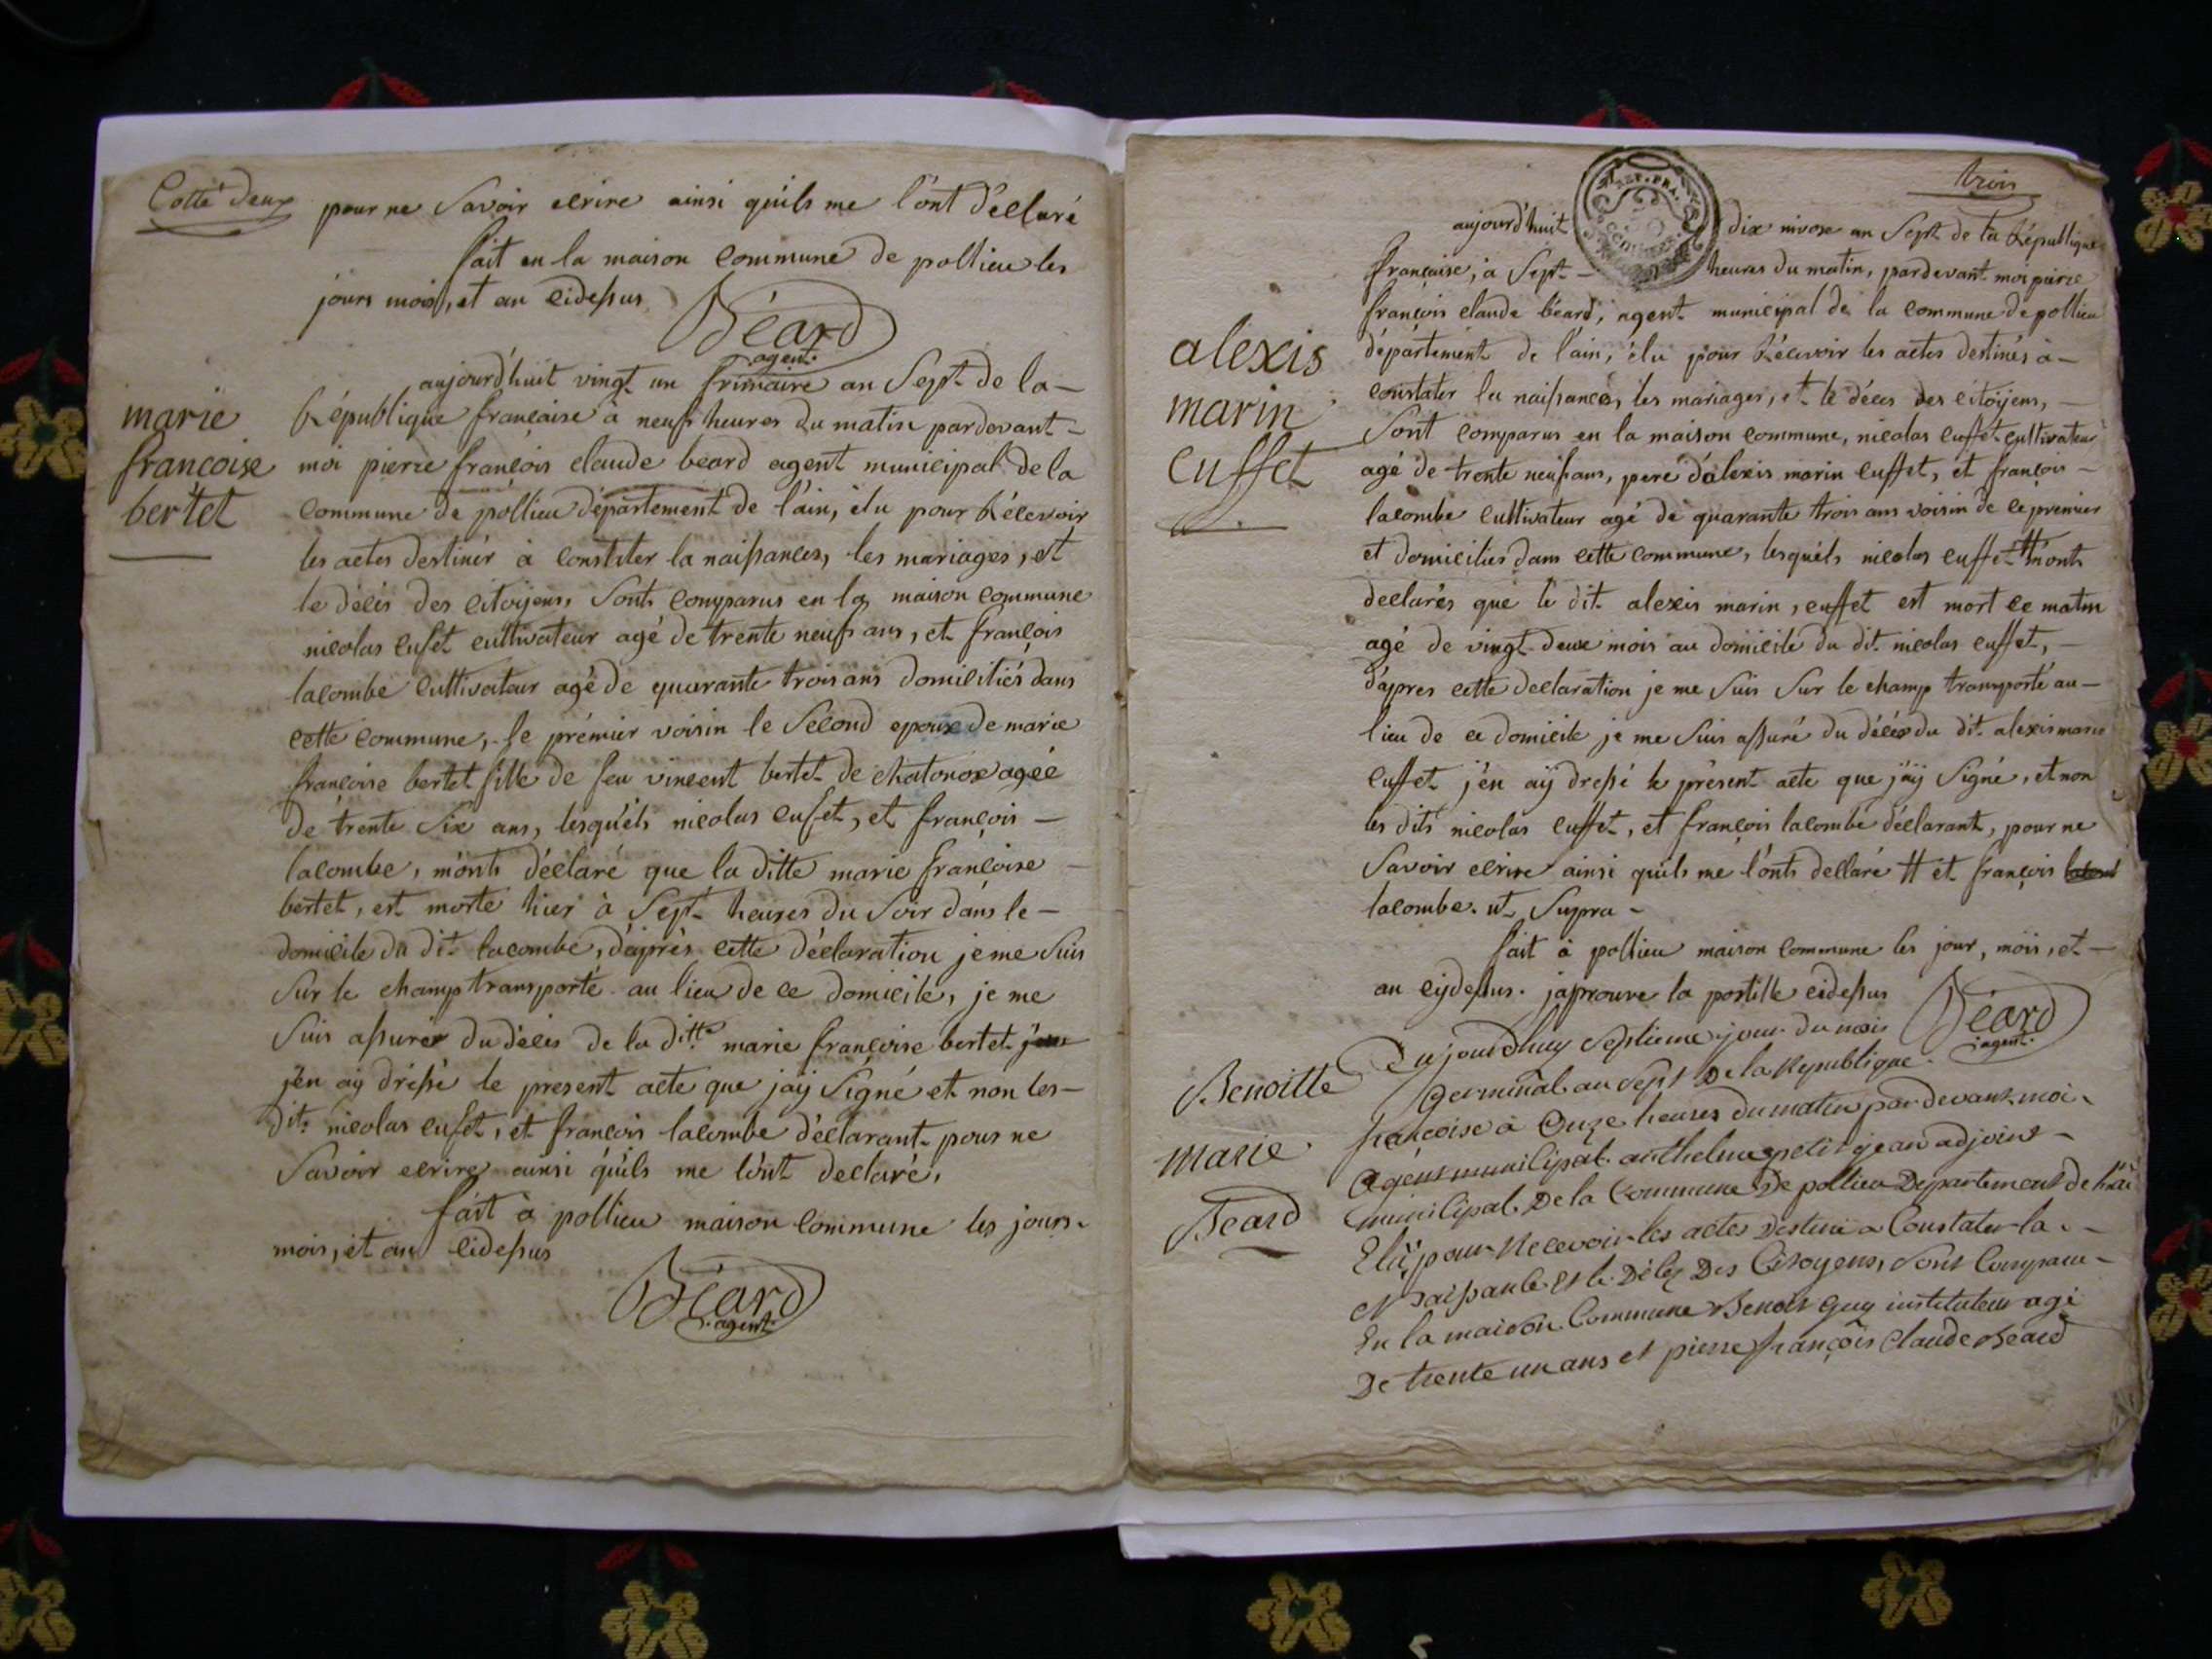 Cotté deux
pour ne Savoir ecrire ainsi quils me l'ont déclaré
fait en la maison commune de pollieu les
jours mois, et an cidessus
Béard
agent.
marie
francoise
bertet
aujourd'huit vingt un frimaire an Sept de la
République francaise a neuf heures du matin pardevant
moi pierre françois claude beard agent municipal de la
commune de pollieu département de l'ain, élu pour Récevoir
les actes destinér à constater la naissances, les mariages, et
le décés des citoijens, Sonts comparus en la maison commune
nicolas cufet cultivateur agé de trente neuf ans, et françois
lacombe cultivateur agé de quarante trois ans domiciliés dans
cette commune, le prémier voisin le Second epoux de marie
françoise bertet fille de feu vincent bertet de chatonox agéé
de trente Six ans, lesquéls nicolas cufet, et françois
lacombe, m'onts déclaré que la ditte marie françoise
bertet, est morte hier à Sept heures du Soir dans le
domicile du dit lacombe, d'après cette déclaration je me Suis
Sur le champ transporté au lieu de ce domicile, je me
Suis assurér du décés de la ditte marie françoise bertet
j'en aij dréssé le present acte que jaij Signé et non les
dit nicolas cufet, et francois lacombe déclarant pour ne
Savoir ecrire ainsi quils me l'ont declaré,
fait à pollieu maison commune les jours
mois, et an cidessus
Béard
agent
trois
REP. FRA.
aujourd'huit dix nivose an Sept de la République
française, a Sept heures du matin, pardevant moi pierre
françois claude béard, agent municipal de la commune de pollieu
département de l'ain, élu pour Récevoir les actes destinés à
constater la naissances, les mariages, et le décés des citoijens,
alexis
marin
cuffet
Sont comparus en la maison commune, nicolas cuffet cultivateur
agé de trente neuf ans, pere d'alexis marin cuffet, et françois
lacombe cultivateur agé de quarante trois ans voisin de ce premier
et domiciliés dans cette commune, lesquéls nicolas cuffet # m'onts
declarés que le dit alexis marin, cuffet est mort ce matin
agé de vingt deux mois au domicile du dit nicolas cuffet,
d'apres cette declaration je me Suis Sur le champ transporté au
lieu de ce domicile je me Suis assuré du décés du dit alexis marin
cuffet j'én aij dressé le présent acte que j'aij Signé, et non
les dits nicolas cuffet, et françois lacombe déclarant, pour ne
Savoir ecrire ainsi quils me l'onts dellaré # et françois
lacombe. ut Supra
fait à pollieu maison commune les jour, mois, et
an cijdessus. japrouve la postille cidessus
Béard
agent.
Benoitte
marie
Beard
Aujourdhuy Septieme jour du mois
Germinal an Sept De la Republique
francoise à Onze heures du matin par devant moi
agent municipal anthelme petit jean adjoint
municipal De la Commune De pollieu Departement de lain
Elu pour Recevoir les actes Destiné a Constater la
Naissance et le Décès Des Citoyens, Sont Comparu
En la maison Commune Benoit Guy instituteur agé
De trente un ans et pierre françois Claude Beard